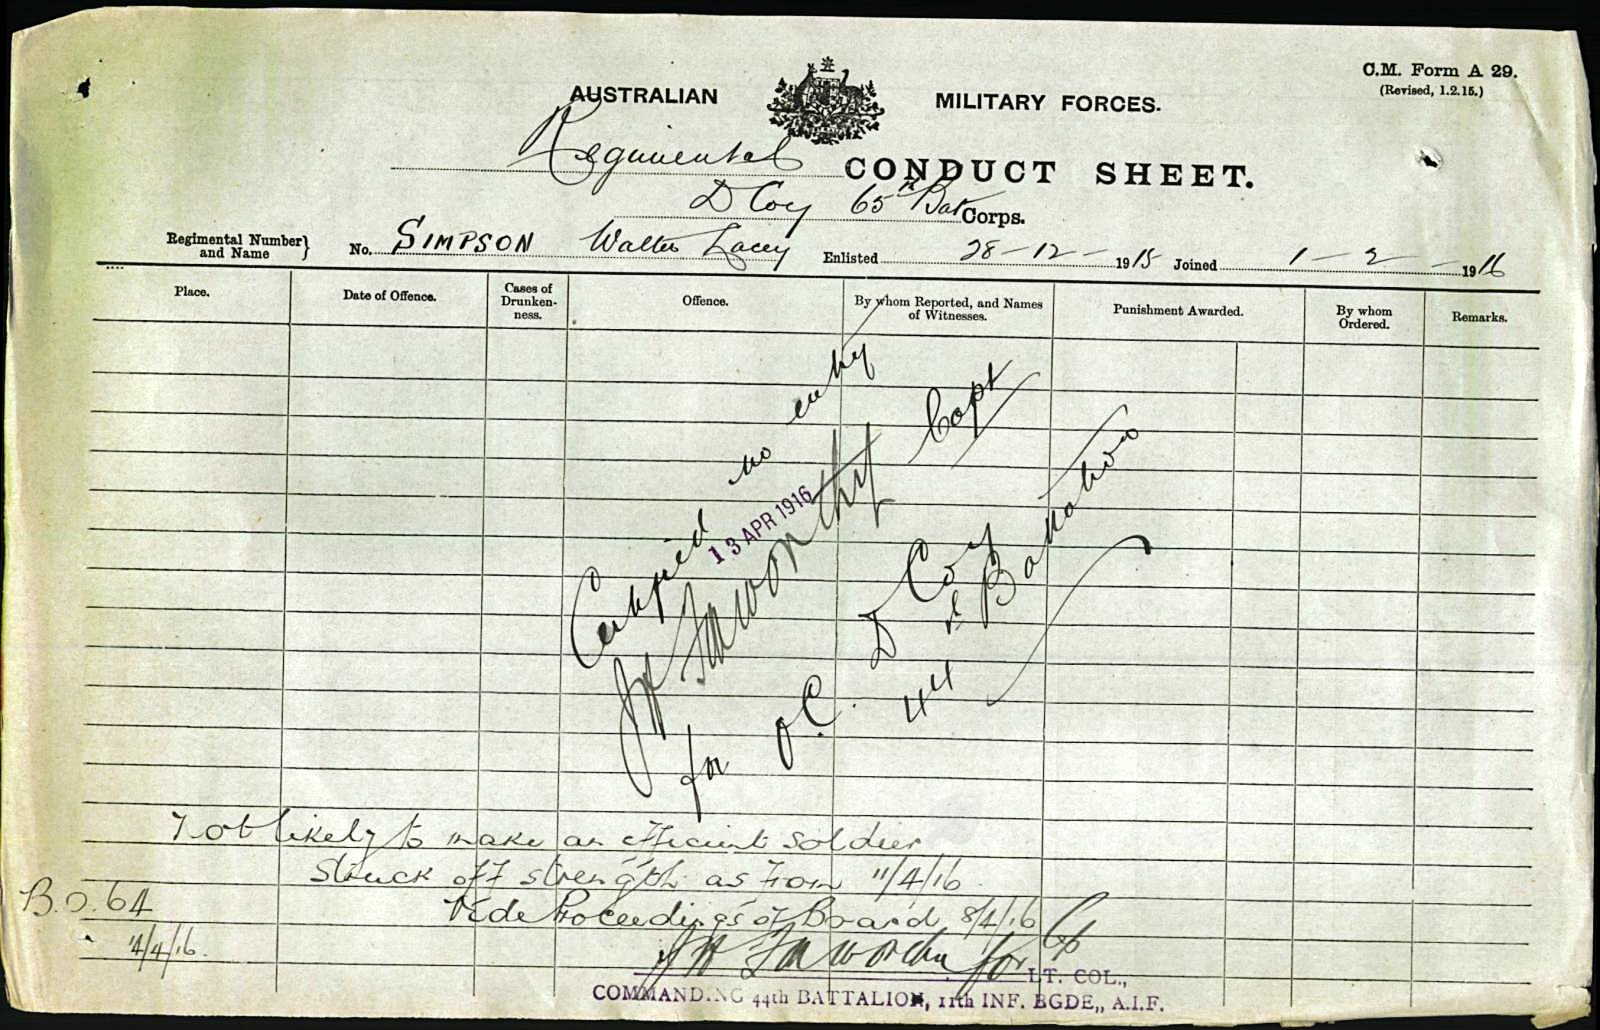 C.M. Form A 29.
(Revised, 1.2.15.)
AUSTRALIAN MILITARY FORCES.
Regimental CONDUCT SHEET.
D Coy 65th Bat Corps.
Regimental Number and Name } No. SIMPSON Walter Lacey Enlisted 28-12-1915 Joined 1-2-1916
Place. Date of Offence. Cases of Drunkenness. Offence. By whom Reported, and Names of Witnesses. Punishment Awarded. By whom Ordered. Remarks.
Certified no entry
13 APR 1916
Capt
for O.C. D Coy
44th Battalion
Not likely to make an efficient soldier
Struck off strength as from 11/4/16
B.O. 64 Vide Proceedings of Board 8/4/16
4/4/16.
for LT. COL.,
COMMANDING 44th BATTALION, 11th INF. BGDE., A.I.F.